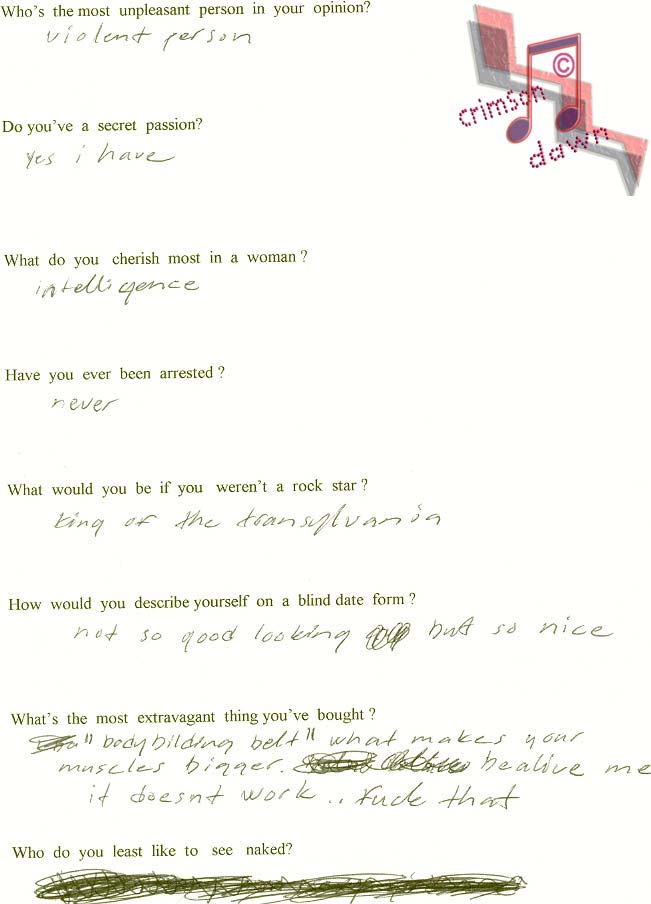 Who's the most unpleasant person in your opinion?
violent person
©
crimson
dawn
Do you've a secret passion?
yes i have
What do you cherish most in a woman?
intelligence
Have you ever been arrested?
never
What would you be if you weren't a rock star?
king of the transylvania
How would you describe yourself on a blind date form?
not so good looking but so nice
What's the most extravagant thing you've bought?
"bodybilding belt" what makes your
muscles bigger. bealive me
it doesnt work.. fuck that
Who do you least like to see naked?